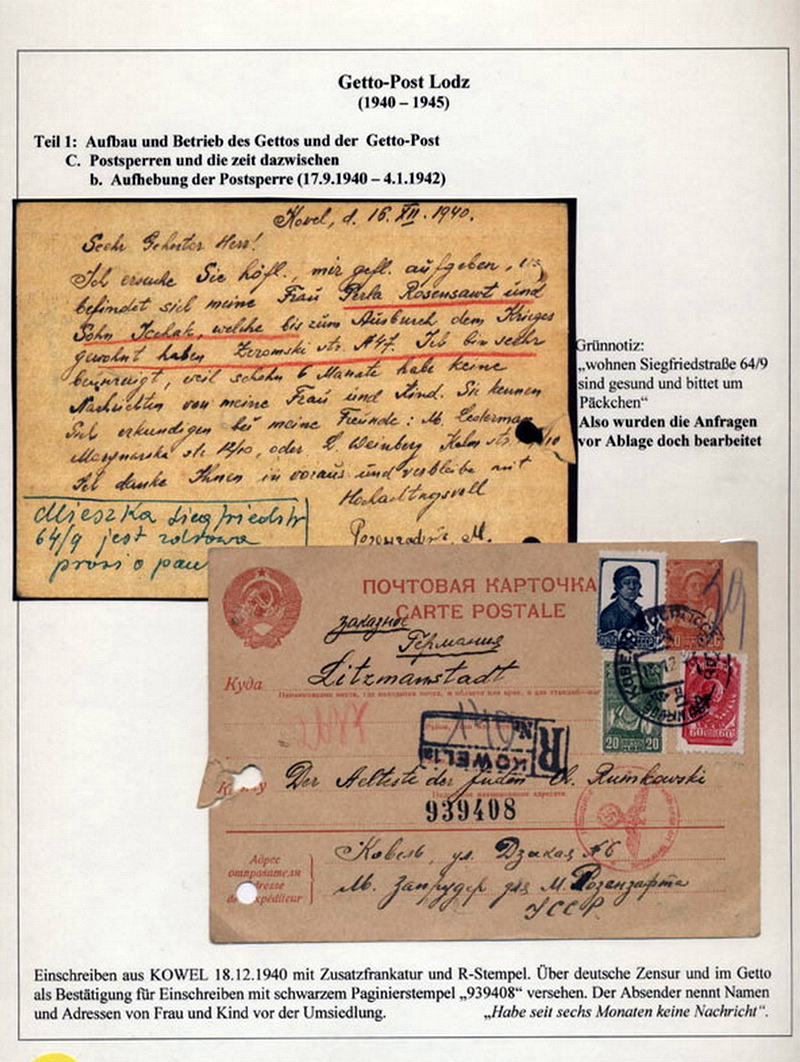 Getto-Post Lodz
(1940 – 1945)
Teil 1: Aufbau und Betrieb des Gettos und der Getto-Post
C. Postsperren und die zeit dazwischen
b. Aufhebung der Postsperre (17.9.1940 – 4.1.1942)
Kovel, d. 16. XII. 1940.
Seehr Gehrter Herr!
Ich ersuche Sie höfl., mir gefl. aufgeben,
befindet sich meine Frau Perla Rosensawt und
Sohn Icchak, welche bis zum Ausburch dem Krieges
gewohnt haben Zeromski str. №47. Ich bin seehr
weil schohn 6 Monate habe keine
Nachrichten von meine Frau und Kind. Sie kennen
Sich erkundigen bei meine Freunde: M. Lederman
Marynarska str 12/10, oder L. Weinberg Kelm str.
Ich danke Ihnen in voraus und verbleibe mit
Hochachtugsvoll
M.
Mieszka Siegfriedstr
64/9 jest zdrowa
prosi o
Grünnotiz:
„wohnen Siegfriedstraße 64/9
sind gesund und bittet um
Päckchen“
Also wurden die Anfragen
vor Ablage doch bearbeitet
ПОЧТОВАЯ КАРТОЧКА
CARTE POSTALE
заказное
Германия
Куда
Litzmanstadt
R
№
KOWEL 1a
20 20
60 60
Кому
Der Aelteste der Juden Ch. Rumkowski
939408
Адрес
отправителя
Adresse
de l'expéditeur
Ковель, ул. Дзикая №6
М. Запрудер для М. Розензафта
УССР.
Einschreiben aus KOWEL 18.12.1940 mit Zusatzfrankatur und R-Stempel. Über deutsche Zensur und im Getto
als Bestätigung für Einschreiben mit schwarzem Paginierstempel „939408“ versehen. Der Absender nennt Namen
und Adressen von Frau und Kind vor der Umsiedlung. „Habe seit sechs Monaten keine Nachricht“.